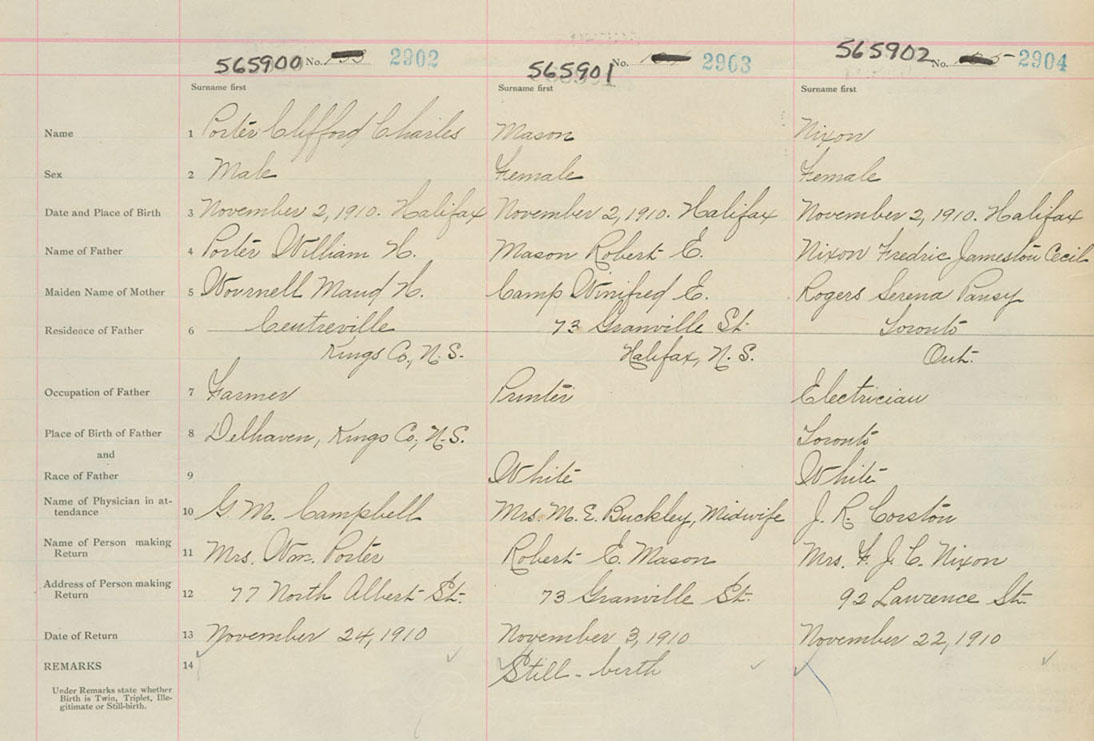 565900 No. 2902 565901 No. 2903 565902 No. 2904
Surname first Surname first Surname first
Name 1 Porter Clifford Charles Mason Nixon
Sex 2 Male Female Female
Date and Place of Birth 3 November 2, 1910. Halifax November 2, 1910. Halifax November 2, 1910. Halifax
Name of Father 4 Porter William H. Mason Robert E. Nixon Fredric Jameston Cecil
Maiden Name of Mother 5 Wournell Maud H. Camp Winifred E. Rogers Serena Pansy
Residence of Father 6 Centreville 73 Granville St. Toronto
Kings Co, N.S. Halifax, N.S. Ont.
Occupation of Father 7 Farmer Printer Electrician
Place of Birth of Father 8 Delhaven, Kings Co, N.S. Toronto
and
Race of Father 9 White White
Name of Physician in at-
tendance 10 G M. Campbell Mrs. M. E. Buckley, Midwife J. R. Corston
Name of Person making
Return 11 Mrs. Wm. Porter Robert E. Mason Mrs. F. J. C. Nixon
Address of Person making
Return 12 77 North Albert St. 73 Granville St. 92 Lawrence St.
Date of Return 13 November 24, 1910 November 3, 1910 November 22, 1910
REMARKS 14 Still-birth
Under Remarks state whether
Birth is Twin, Triplet, Ille-
gitimate or Still-birth.